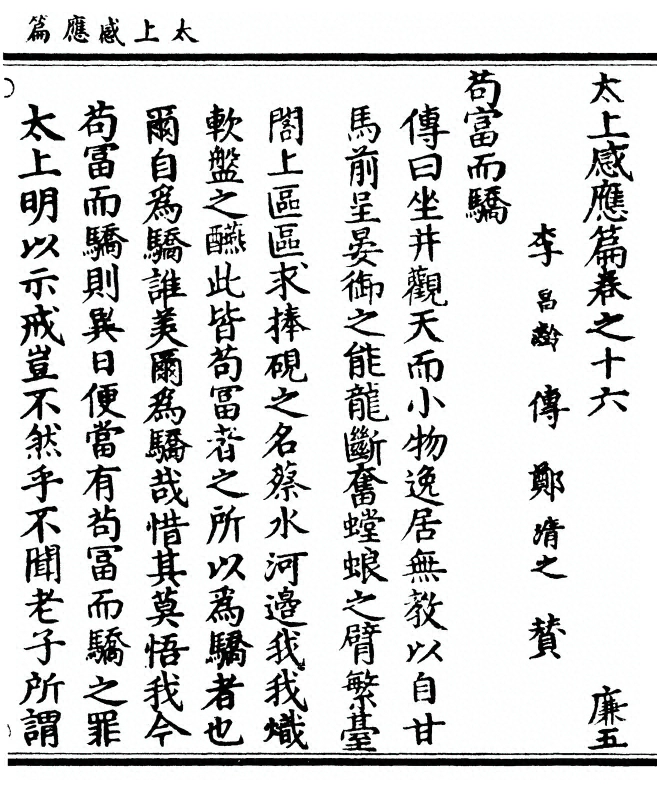 太上感應篇
太上感應篇卷之十六 廉五
李昌齡 傳 鄭清之 賛
苟富而驕
傳曰坐井觀天而小物逸居無教以自甘
馬前呈晏御之能龍斷奮螳蜋之臂繁臺
閣上區區求捧硯之名蔡水河邉我我熾
軟盤之䤘此皆苟冨者之所以為驕者也
爾自為驕誰羙爾為驕哉惜其莫悟我今
苟冨而驕則異日便當有苟冨而驕之罪
太上明以示戒豈不然乎不聞老子所謂